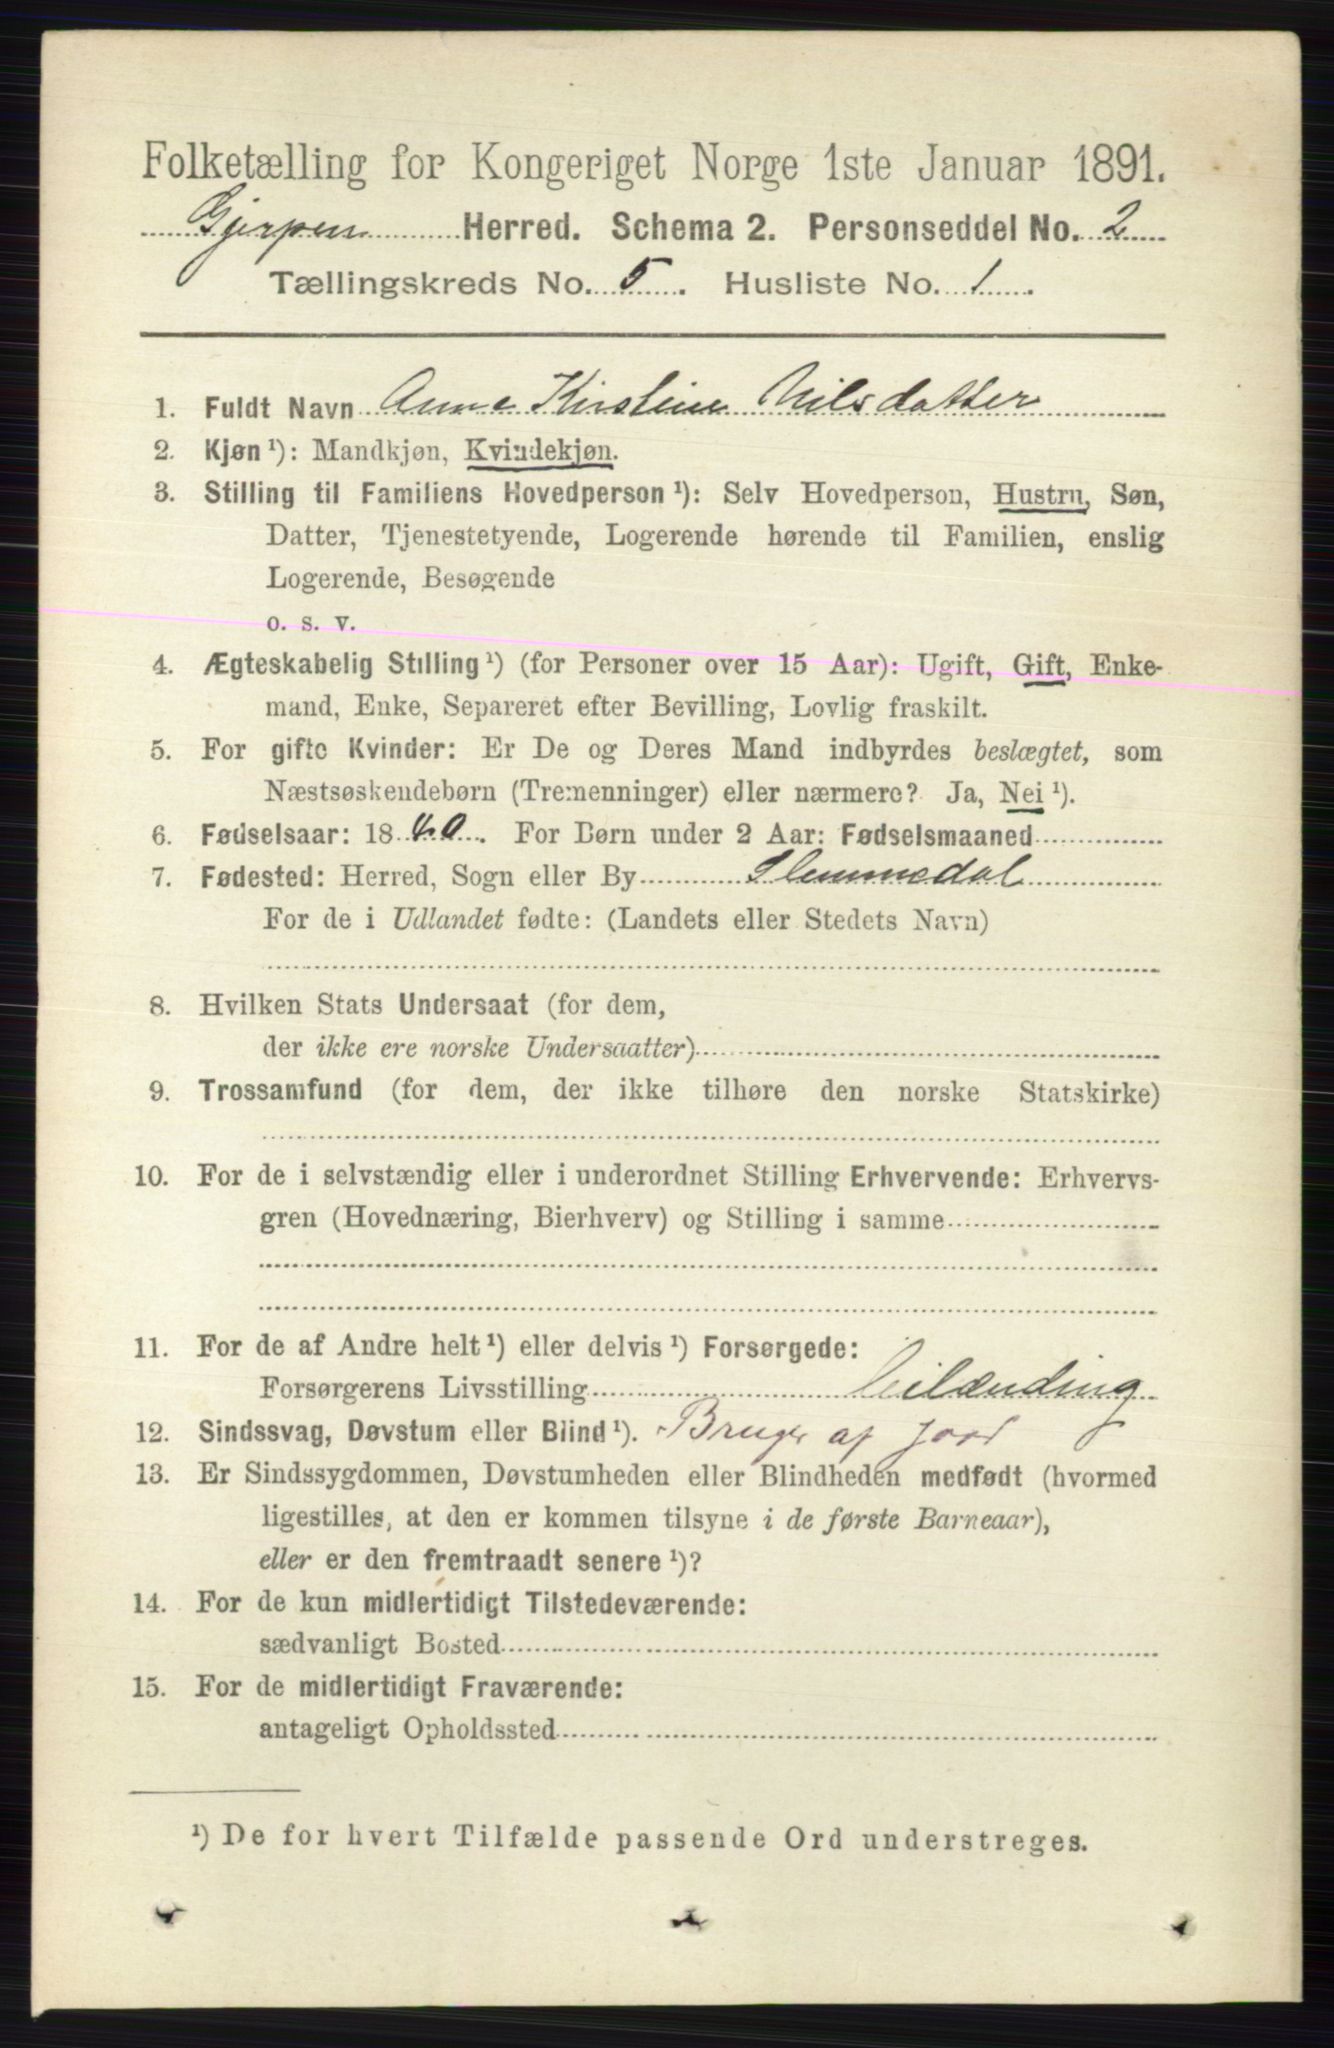 Folketælling for Kongeriget Norge 1ste Januar 1891.
Gjerpen Herred. Schema 2. Personseddel No. 2
Tællingskreds No. 5. Husliste No. 1.
1. Fuldt Navn Anne Kirstine Nilsdatter
2. Kjøn¹): Mandkjøn, Kvindekjøn.
3. Stilling til Familiens Hovedperson¹): Selv Hovedperson, Hustru, Søn,
Datter, Tjenestetyende, Logerende hørende til Familien, enslig
Logerende, Besøgende
o. s. v.
4. Ægteskabelig Stilling¹) (for Personer over 15 Aar): Ugift, Gift, Enke-
mand, Enke, Separeret efter Bevilling, Lovlig fraskilt.
5. For gifte Kvinder: Er De og Deres Mand indbyrdes beslægtet, som
Næstsøskendebørn (Tremenninger) eller nærmere? Ja, Nei¹).
6. Fødselsaar: 18 . For Børn under 2 Aar: Fødselsmaaned
7. Fødested: Herred, Sogn eller By Slemmedal
For de i Udlandet fødte: (Landets eller Stedets Navn)
8. Hvilken Stats Undersaat (for dem,
der ikke ere norske Undersaatter)
9. Trossamfund (for dem, der ikke tilhøre den norske Statskirke)
10. For de i selvstændig eller i underordnet Stilling Erhvervende: Erhvervs-
gren (Hovednæring, Bierhverv) og Stilling i samme
11. For de af Andre helt¹) eller delvis¹) Forsørgede:
Forsørgerens Livsstilling
12. Sindssvag, Døvstum eller Blind¹). Bruger af Jord
13. Er Sindssygdommen, Døvstumheden eller Blindheden medfødt (hvormed
ligestilles, at den er kommen tilsyne i de første Barneaar),
eller er den fremtraadt senere¹)?
14. For de kun midlertidigt Tilstedeværende:
sædvanligt Bosted
15. For de midlertidigt Fraværende:
antageligt Opholdssted
¹) De for hvert Tilfælde passende Ord understreges.